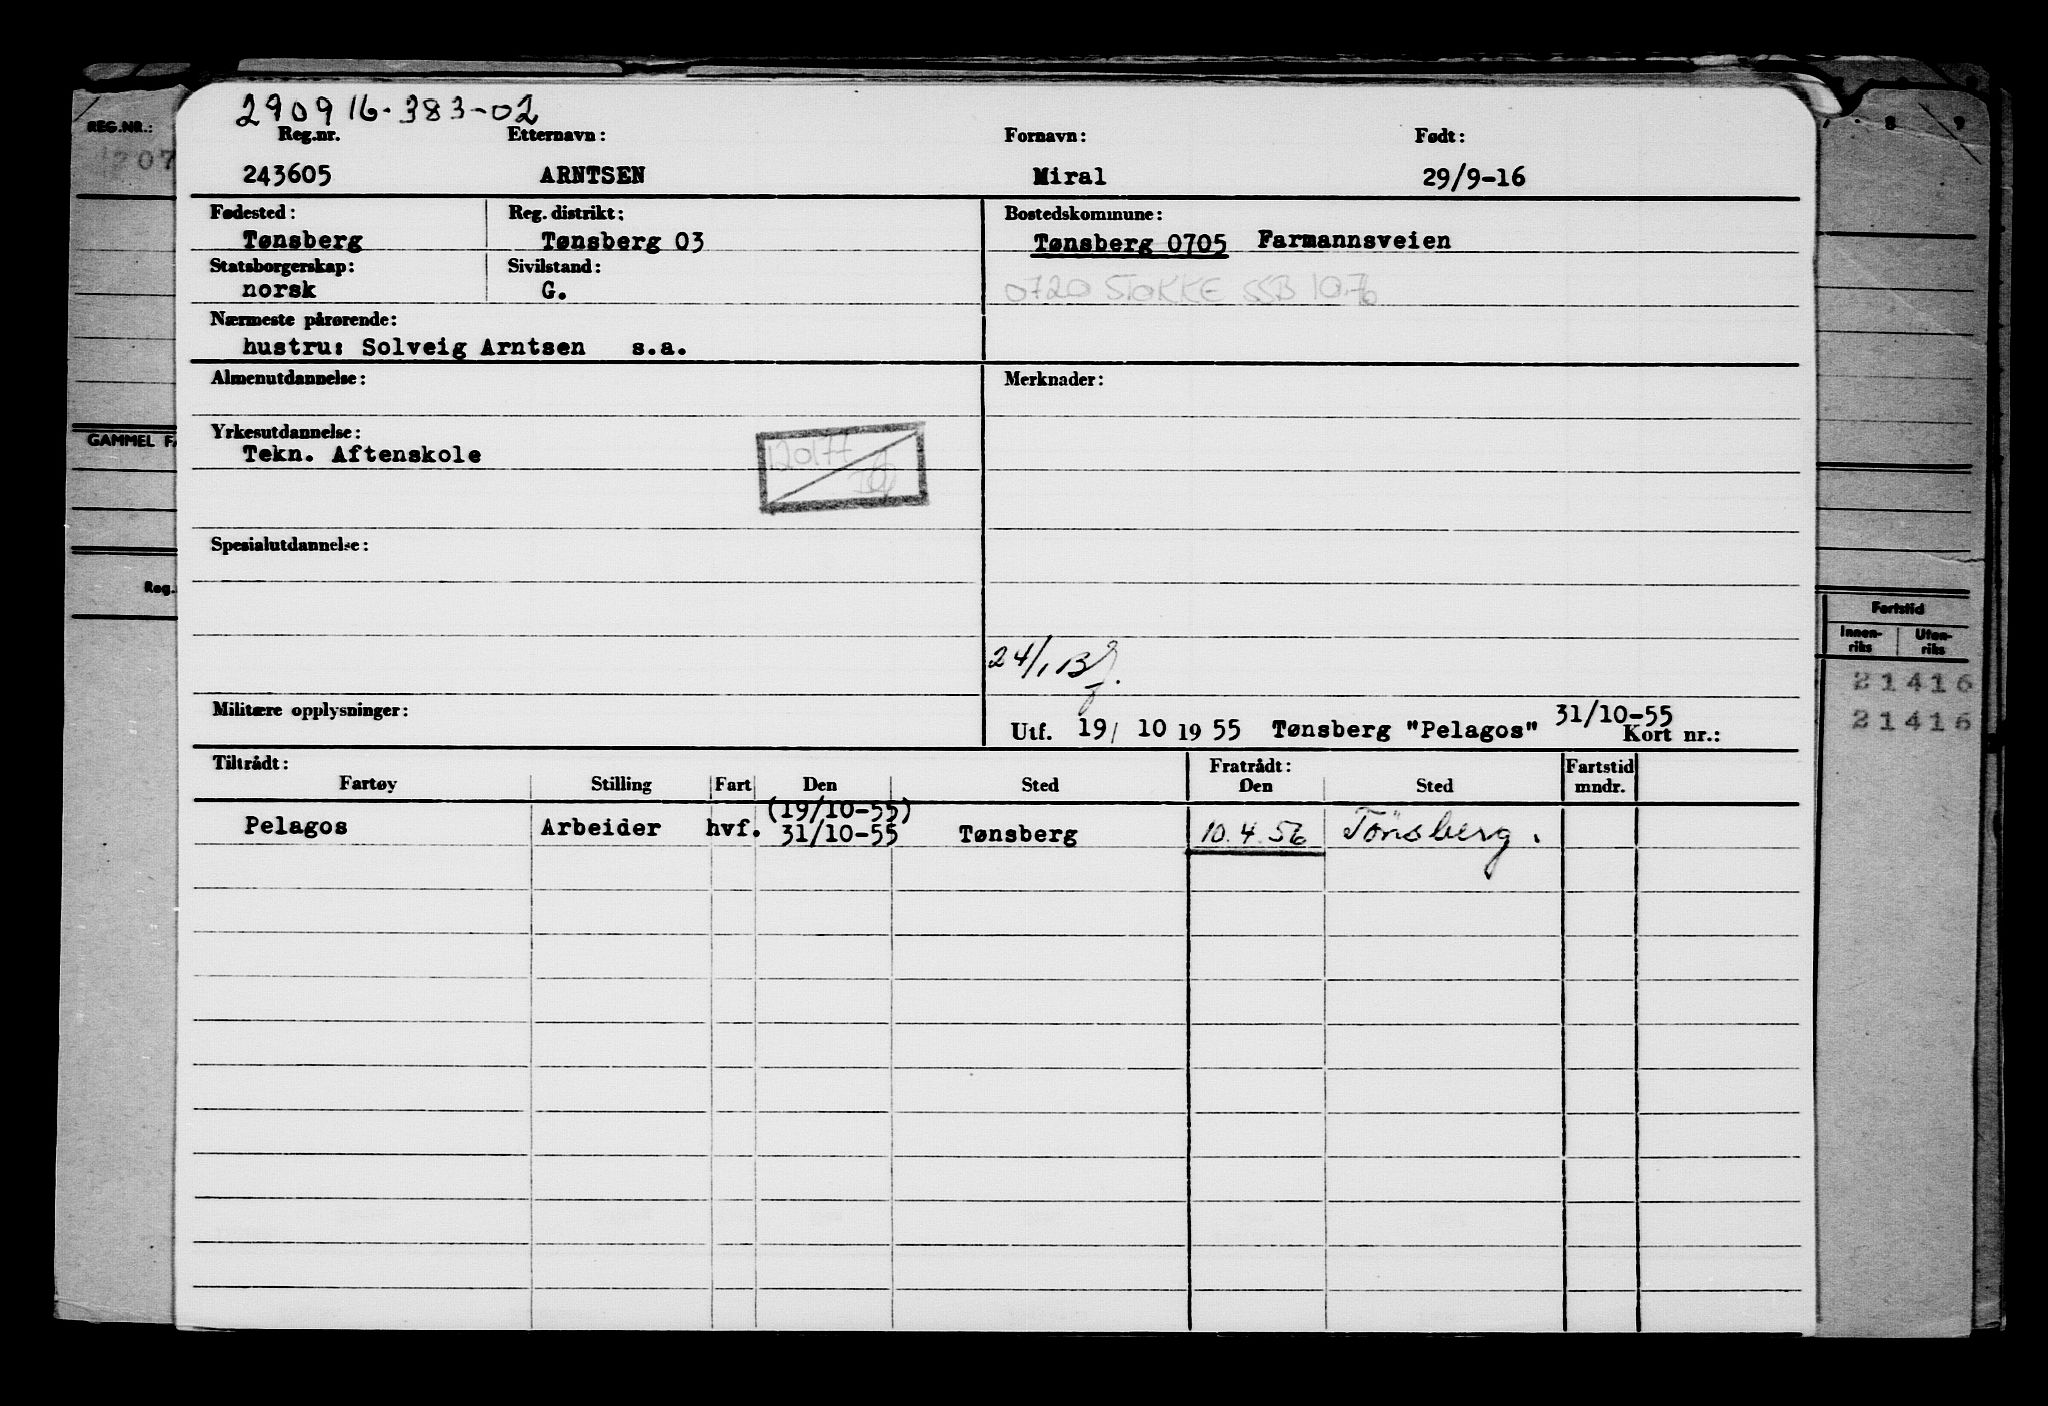 290916-383-02
Reg.nr. Etternavn: Fornavn: Født:
243605 ARNTSEN Miral 29/9-16
Fødested: Reg. distrikt: Bostedskommune:
Tønsberg Tønsberg 03 Tønsberg 0705 Farmannsveien
Statsborgerskap: Sivilstand:
norsk G. 0720 STOKKE SSB 10.76
Nærmeste pårørende:
hustru: Solveig Arntsen s.a.
Almenutdannelse: Merknader:
Yrkesutdannelse:
Tekn. Aftenskole
120177
Spesialutdannelse:
24/1 Bf.
Militære opplysninger:
31/10-55
Utf. 19/ 10 1955 Tønsberg "Pelagos" Kort nr.:
Tiltrådt: Fratrådt: Fartstid
Fartøy Stilling Fart Den Sted Den Sted mndr.
(19/10-55)
Pelagos Arbeider hvf. 31/10-55 Tønsberg 10.4.56 Tönsberg.
REG.NR.:
207
GAMMEL FA
Reg.
8 9
Fartstid
Innen-riks Uten-riks
21416
21416